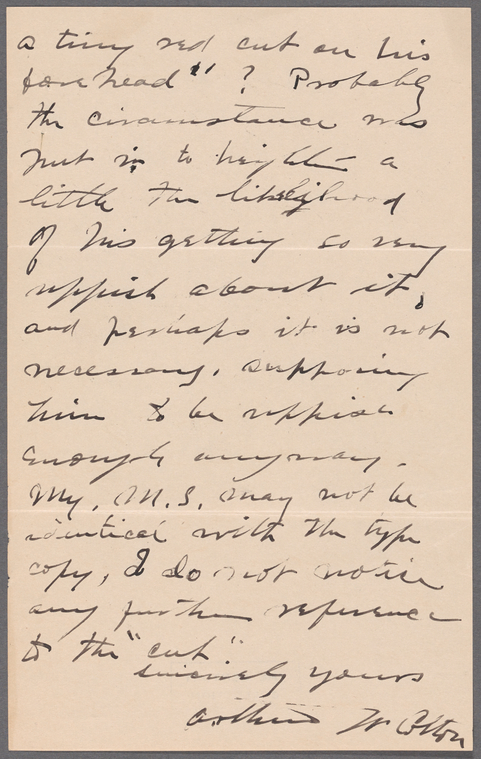 a tiny red cut on his
forehead" ? Probably
the circumstance was
put in to heighten a
little the likelihood
of his getting so very
uppish about it,
and perhaps it is not
necessary, supposing
him to be uppish
enough anyway.
My. M.S. may not be
identical with the type
copy, I do not notice
any further reference
to the "cut"
sincerely yours
Arthur W Colton